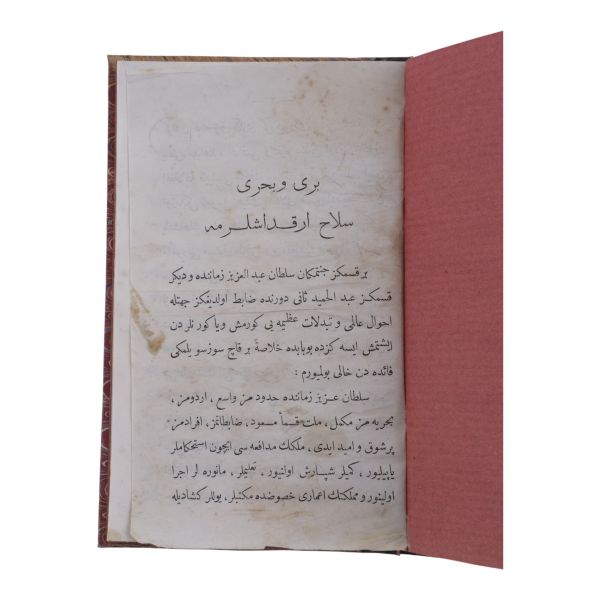 بری و بحری
سلاح ارقداشلرمه
بر قسمكز جنتمكان سلطان عبد العزیز زماننده و دیكر
قسمكز عبد الحمید ثانی دورنده ضابط اولدیغكز جهتله
احوال عالمی و تبدلات عظیمه یی كورمش ویا كورنلردن
ایشتمش ایسه كزده بوبابده خلاصةً بر قاچ سوز سویلمكی
فائده دن خالی بولمیورم :
سلطان عزیز زماننده حدود مز واسع ، اردومز ،
بحریه مز مكمل ، ملت قسماً مسعود ، ضابطانمز ، افرادمز
پرشوق و امید ایدی ، ملكك مدافعه سی ایچون استحكاملر
یاپیلیور ، كمیلر سپارش اولنیور ، تعلیملر ، مانوره لر اجرا
اولینیور و مملكتك اعماری خصوصنده مكتبلر ، یوللر كشادیله